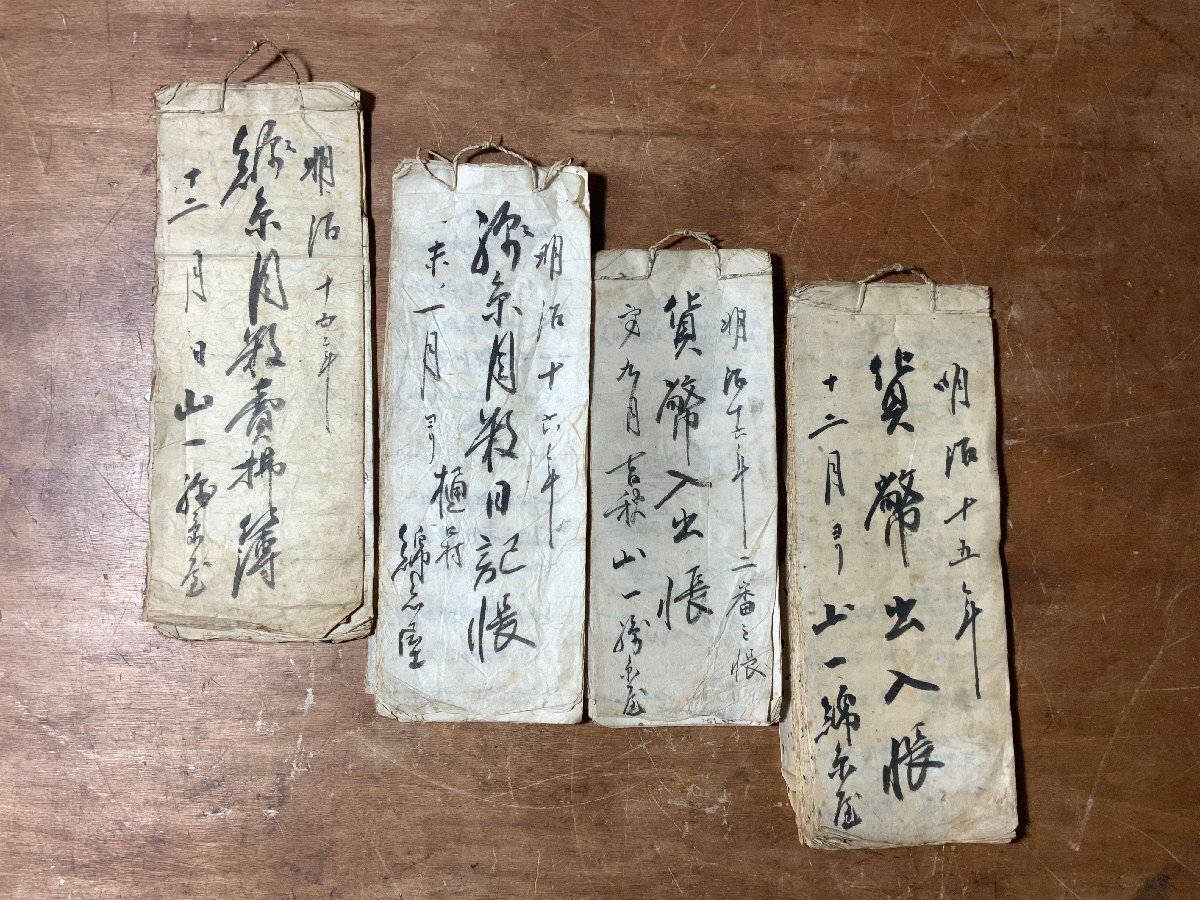 明治十四年
綿糸目数賣拂簿
十二月日山一綿糸屋
明治十六年
綿糸目数日記帳
未一月ヨリ
綿糸屋
明治十六年二番之帳
貨幣入出帳
九月吉祥山一綿糸屋
明治十五年
貨幣出入帳
十二月ヨリ山一綿糸屋